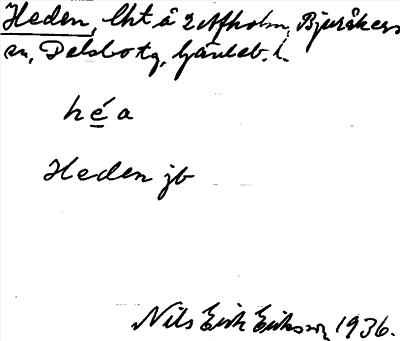 Heden, lht å 2 Afholm, Bjuråkers
sn, Delsbo tg, Gävleb. l.
hé̲a
Heden jb
Nils Erik Eriksson 1936.